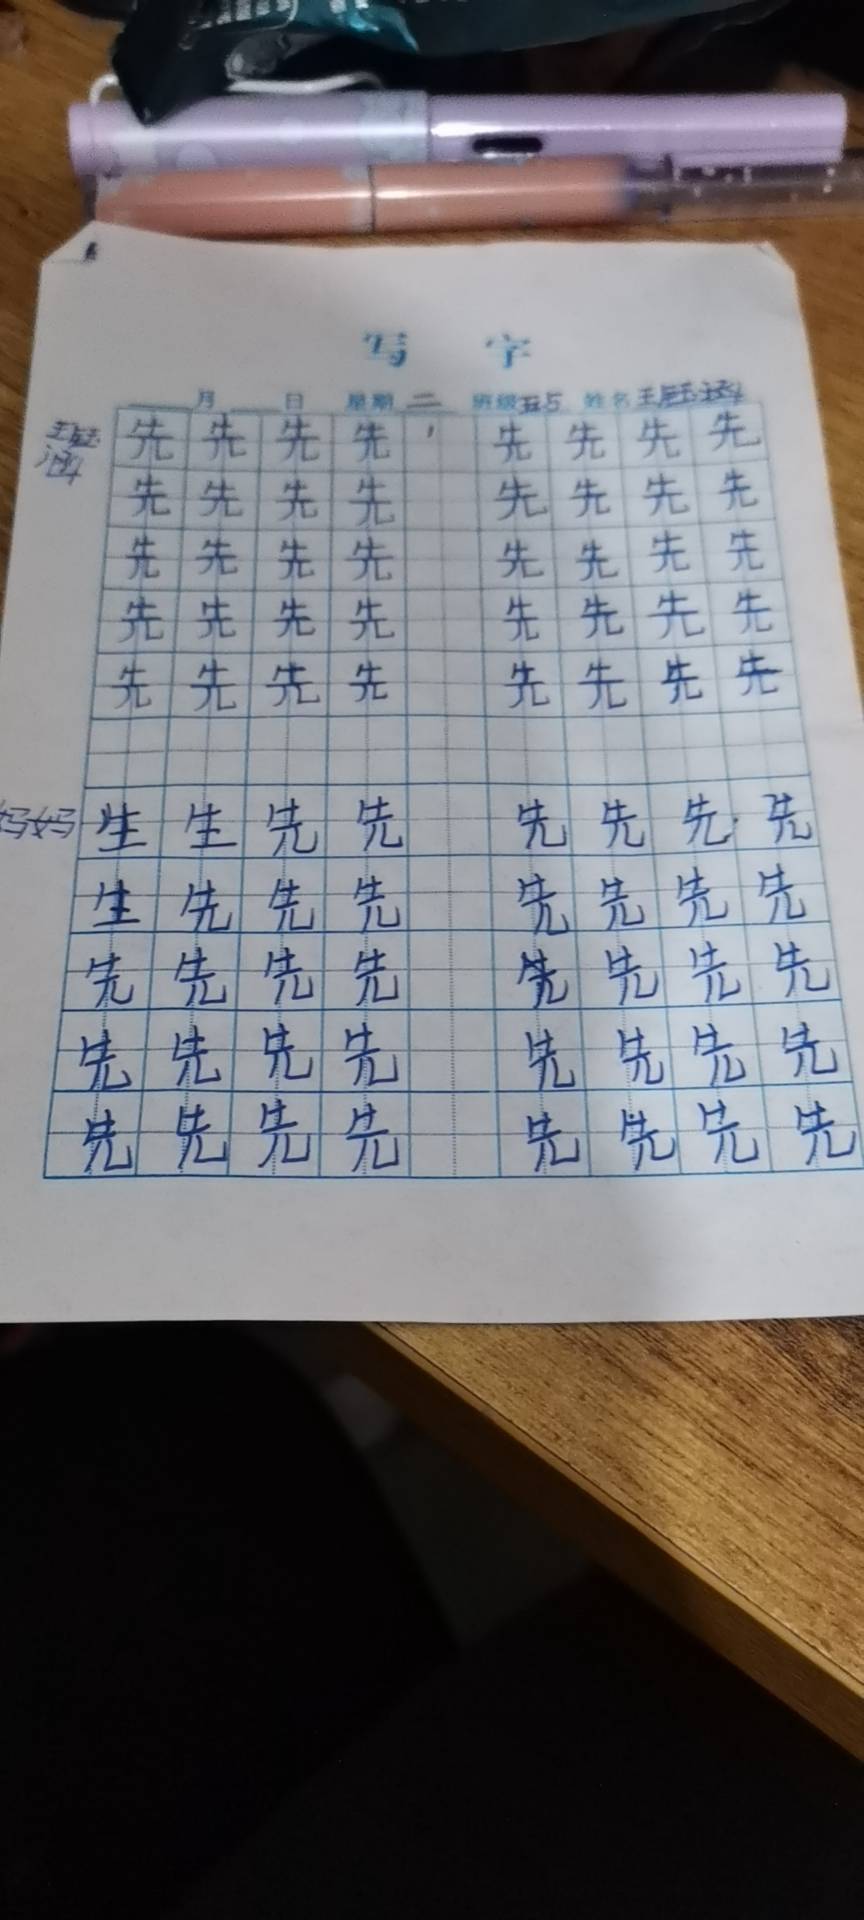 写 字
月 日 星期 二 班级 五5 姓名 王珏涵
王珏涵 先 先 先 先 先 先 先 先
先 先 先 先 先 先 先 先
先 先 先 先 先 先 先 先
先 先 先 先 先 先 先 先
先 先 先 先 先 先 先 先
妈妈 生 生 先 先 先 先 先 先
生 先 先 先 先 先 先 先
先 先 先 先 先 先 先 先
先 先 先 先 先 先 先 先
先 先 先 先 先 先 先 先